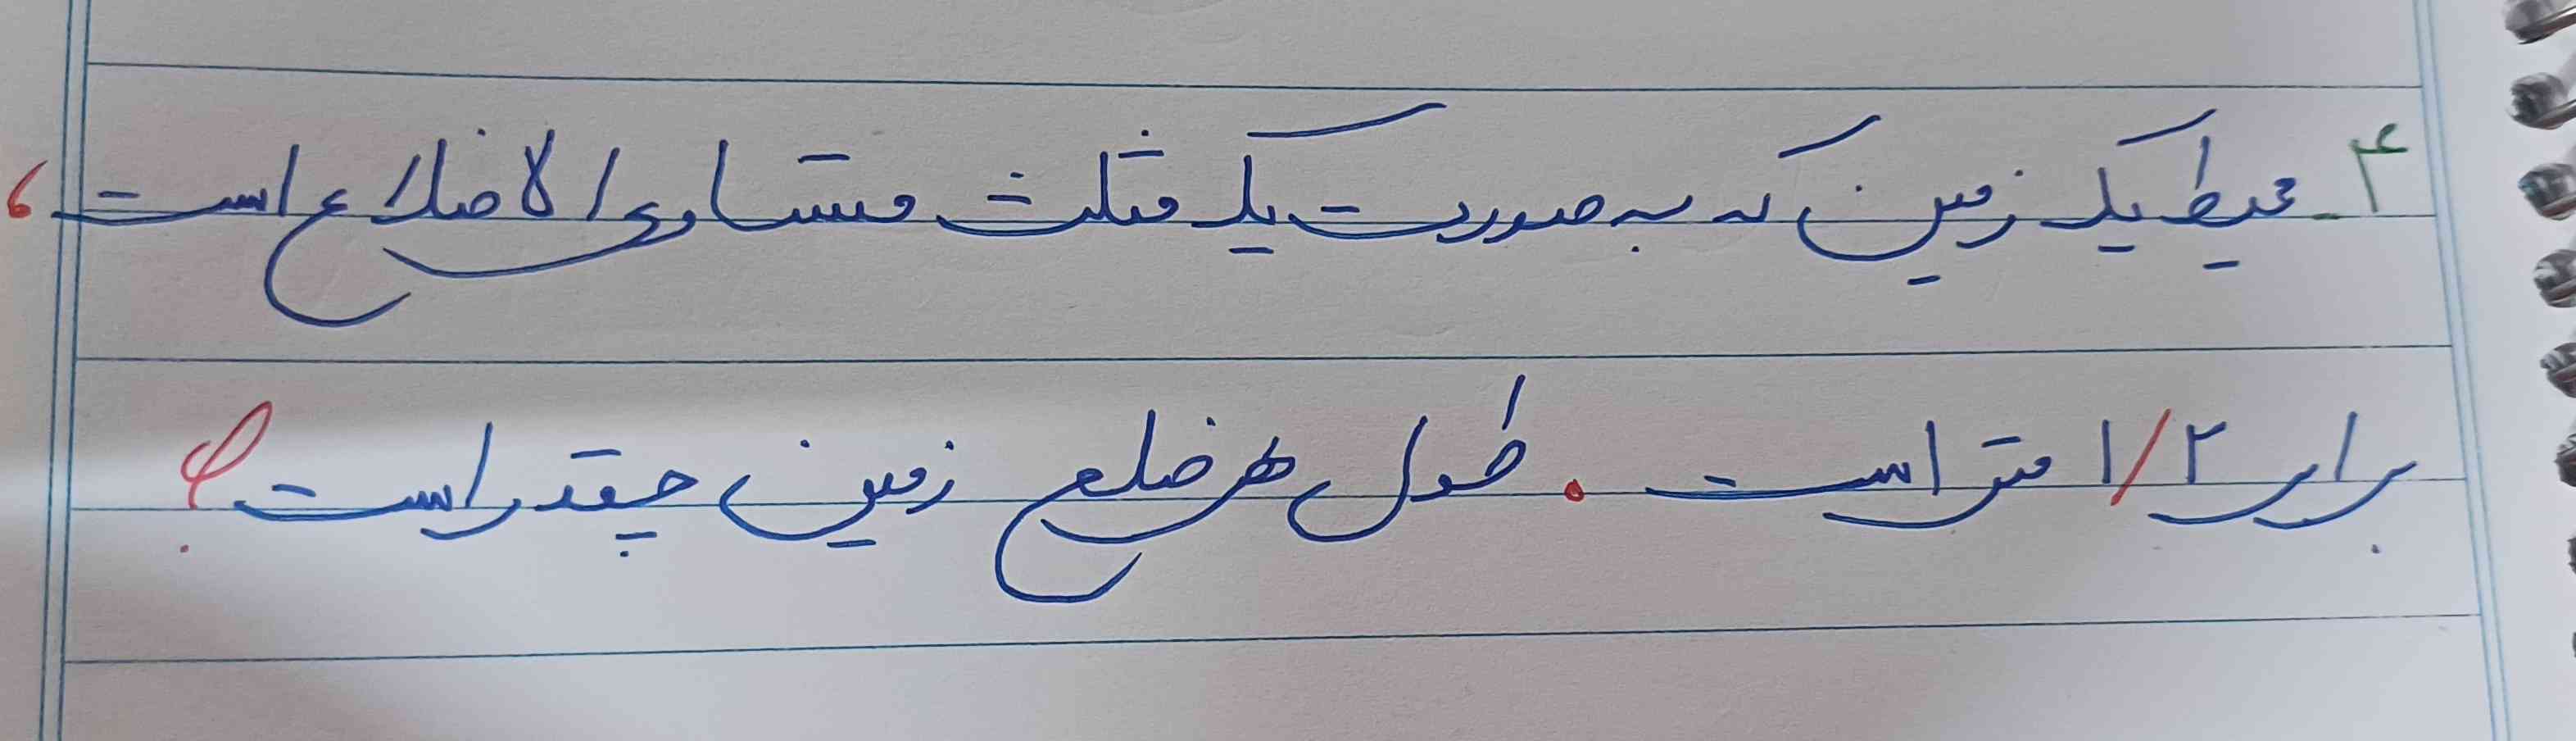 ۴- محیط یک زمین که به صورت یک مثلث متساوی الاضلاع است،
برابر ۱/۲ متر است. طول هر ضلع زمین چقدر است؟